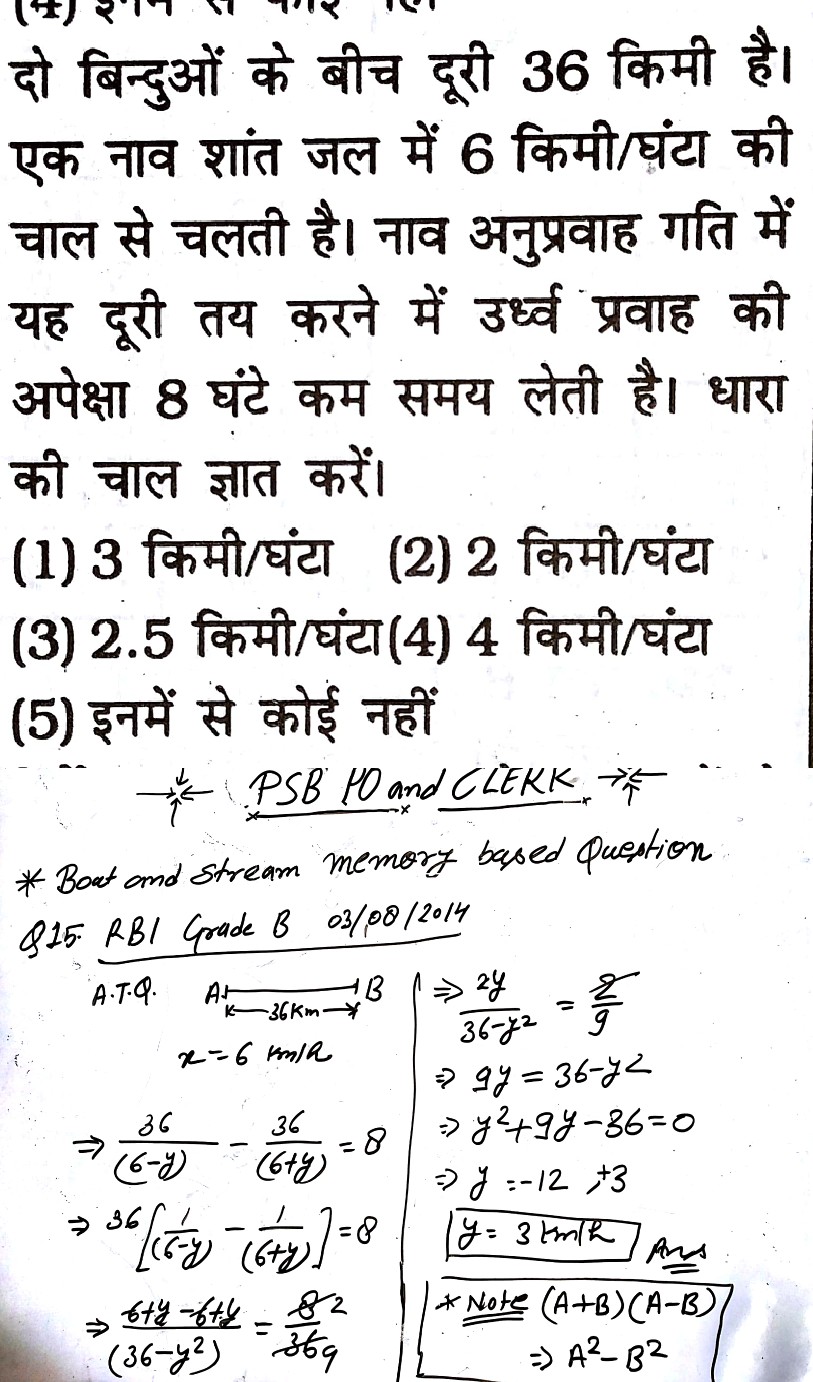 दो बिन्दुओं के बीच दूरी 36 किमी है।
एक नाव शांत जल में 6 किमी/घंटा की
चाल से चलती है। नाव अनुप्रवाह गति में
यह दूरी तय करने में उर्ध्व प्रवाह की
अपेक्षा 8 घंटे कम समय लेती है। धारा
की चाल ज्ञात करें।
(1) 3 किमी/घंटा (2) 2 किमी/घंटा
(3) 2.5 किमी/घंटा (4) 4 किमी/घंटा
(5) इनमें से कोई नहीं
PSB PO and CLERK
* Boat and Stream memory based Question
Q15. RBI Grade B 03/08/2014
A.T.Q. A B
36Km
x = 6 km/h
⇒ 36/(6-y) - 36/(6+y) = 8
⇒ 36[1/(6-y) - 1/(6+y)] = 8
⇒ 6+y-6+y/(36-y²) = 8/36 2/9
⇒ 2y/36-y² = 2/9
⇒ 9y = 36-y²
⇒ y²+9y-36=0
⇒ y = -12, +3
y = 3 km/h Ans
* Note (A+B)(A-B)
⇒ A²-B²